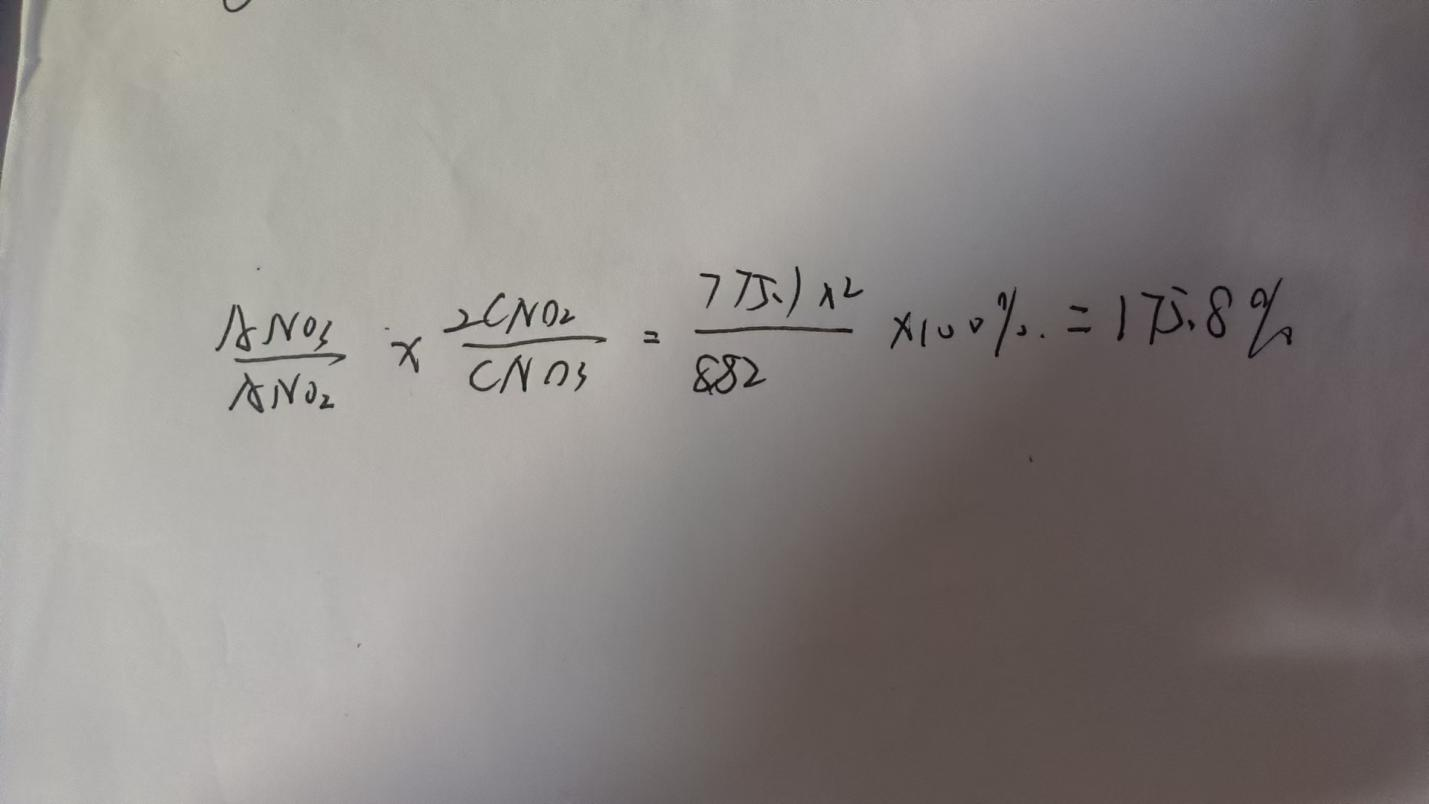 ANO3/ANO2 × 2CNO2/CNO3 = 775.1×2/882 ×100%. = 175.8%